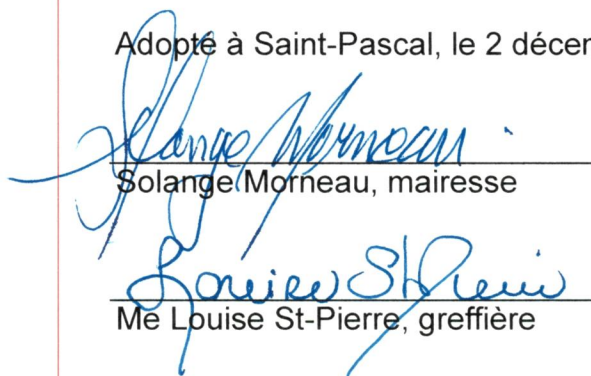 Adopté à Saint-Pascal, le 2 décem
Solange Morneau
Solange Morneau, mairesse
Louise St-Pierre
Me Louise St-Pierre, greffière